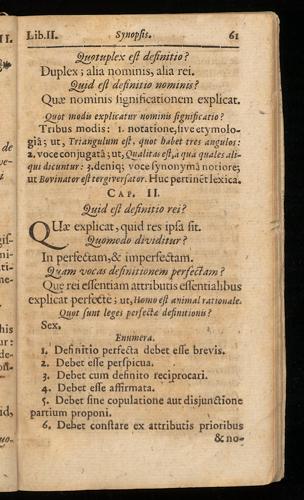 Lib. II. Synopsis. 61
Quotuplex est definitio?
Duplex; alia nominis, alia rei.
Quid est definitio nominis?
Quæ nominis significationem explicat.
Quot modis explicatur nominis significatio?
Tribus modis: 1. notatione, sive etymolo-
giâ; ut, Triangulum est, quot habet tres angulos:
2. voce conjugatâ; ut, Qualitas est, à quâ quales ali-
qui dicuntur: 3. deniq; voce synonymâ notiore;
ut Bovinator est tergiversator. Huc pertinẽt lexica.
CAP. II.
Quid est definitio rei?
QUæ explicat, quid res ipsa sit.
Quomodo dividitur?
In perfectam, & imperfectam.
Quam vocas definitionem perfectam?
Que rei essentiam attributis essentialibus
explicat perfectè; ut, Homo est animal rationale.
Quot sunt leges perfectæ definitionis?
Sex.
Enumera.
1. Definitio perfecta debet esse brevis.
2. Debet esse perspicua.
3. Debet cum definito reciprocari.
4. Debet esse affirmata.
5. Debet sine copulatione aut disjunctione
partium proponi.
6. Debet constare ex attributis prioribus
& no-